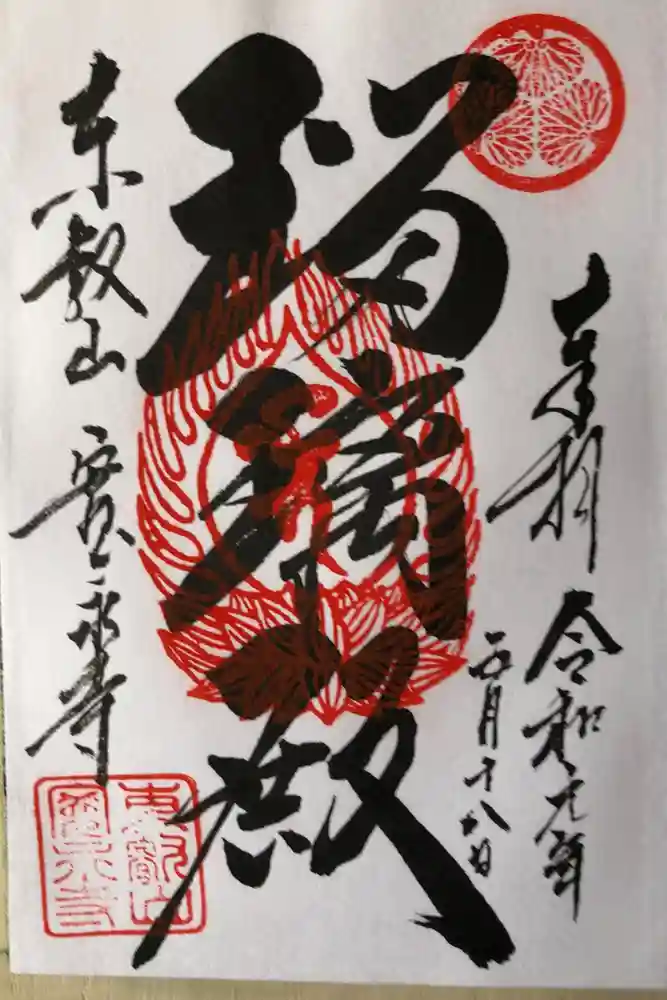 奉拝 令和元年
五月十八日
瑠璃殿
東叡山 寛永寺
東叡山
寛永寺